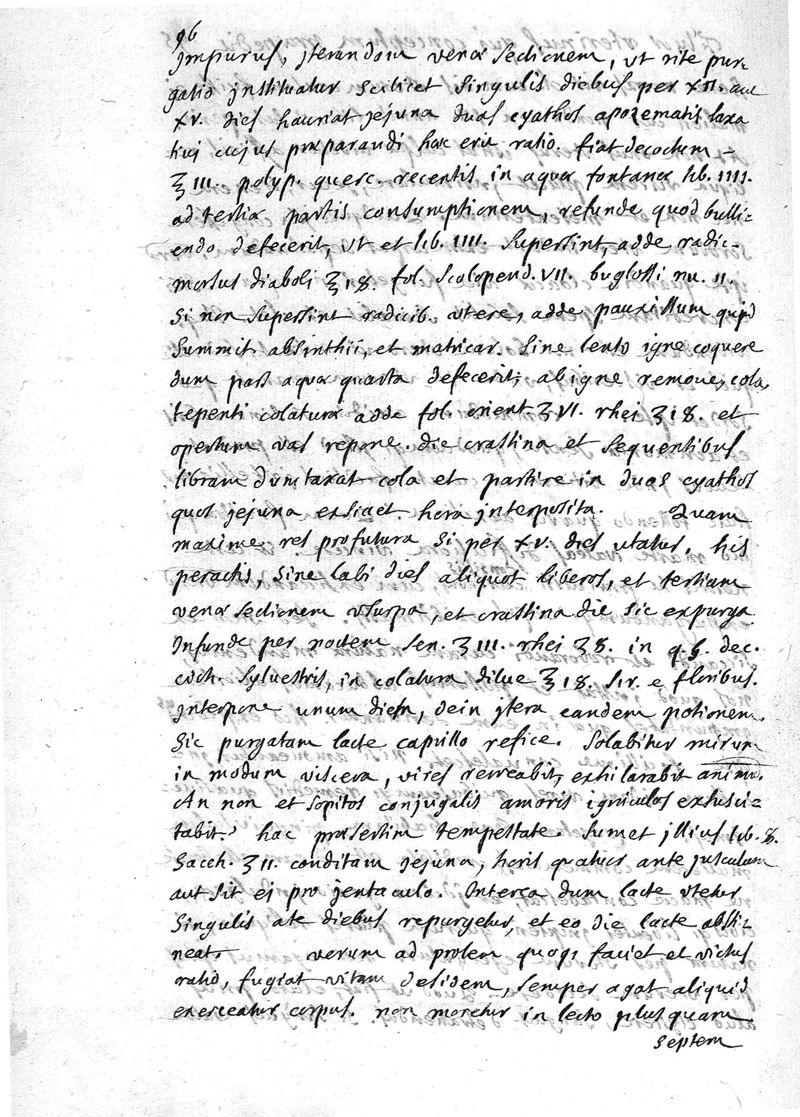 96
Impurus, iterandam venæ sectionem, ut rite pur-
gatio instituatur scilicet singulis diebus per XII. aut
XV. dies hauriat jejuna duos cyathos apozematis laxa
tivi cujus præparandi hæc erit ratio. fiat decoctum -
℥ III. polyp. querc. recentis in aquæ fontanæ lib. IIII.
ad tertiæ partis consumptionem, refunde quod bulli-
endo defecerit, ut et lib. IIII. supersint, adde radic-
morsus diaboli ℥ iß. fol. scolopend. VII. buglossi nu. II.
si non supersint radicib. utere, adde pauxillum quid
summit. absinthii, et matricar. sine lento igne coquere
dum pars aquæ quarta defecerit, ab igne remove, cola,
tepenti colaturæ adde fol. orient ℥ VI. rhei ℥ iß. et
opertum vas repone. die crastina et sequentibus
libram dumtaxat cola et partire in duos cyathos
quos jejuna exsiccet. hora interposita. Quam
maxime res profutura si per XV. dies utatur, his
peractis, sine labi dies aliquot liberos, et tertiam
venæ sectionem usurpa, et crastina die sic expurga.
Infunde per noctem sen. ℥ III. rhei ℥ß. in q.s. dec.
cich. sylvestris, in colatura dilue ℥ iß. sir. e floribus.
interpone unum diem, dein itera eandem potionem.
Sic purgatam lacte caprillo refice. Solabitur mirum
in modum viscera, vires recreabit, exhilarabit animū.
An non et sopitos conjugalis amoris igniculos exsusci-
tabit? hac præsertim tempestate. Sumet illius lib. ß.
Sacch. ℥ II. conditam jejuna, horis quatuor ante jusculum
aut sit ei pro jentaculo. Interea dum lacte utetur
singulis diebus repurgetur, et eo die lacte absti-
neat. verum ad prolem quoq; faciet et victus
ratio, fugiat vitam desidem, semper agat aliquid
exerceatur corpus. non moretur in lecto plus quam
septem